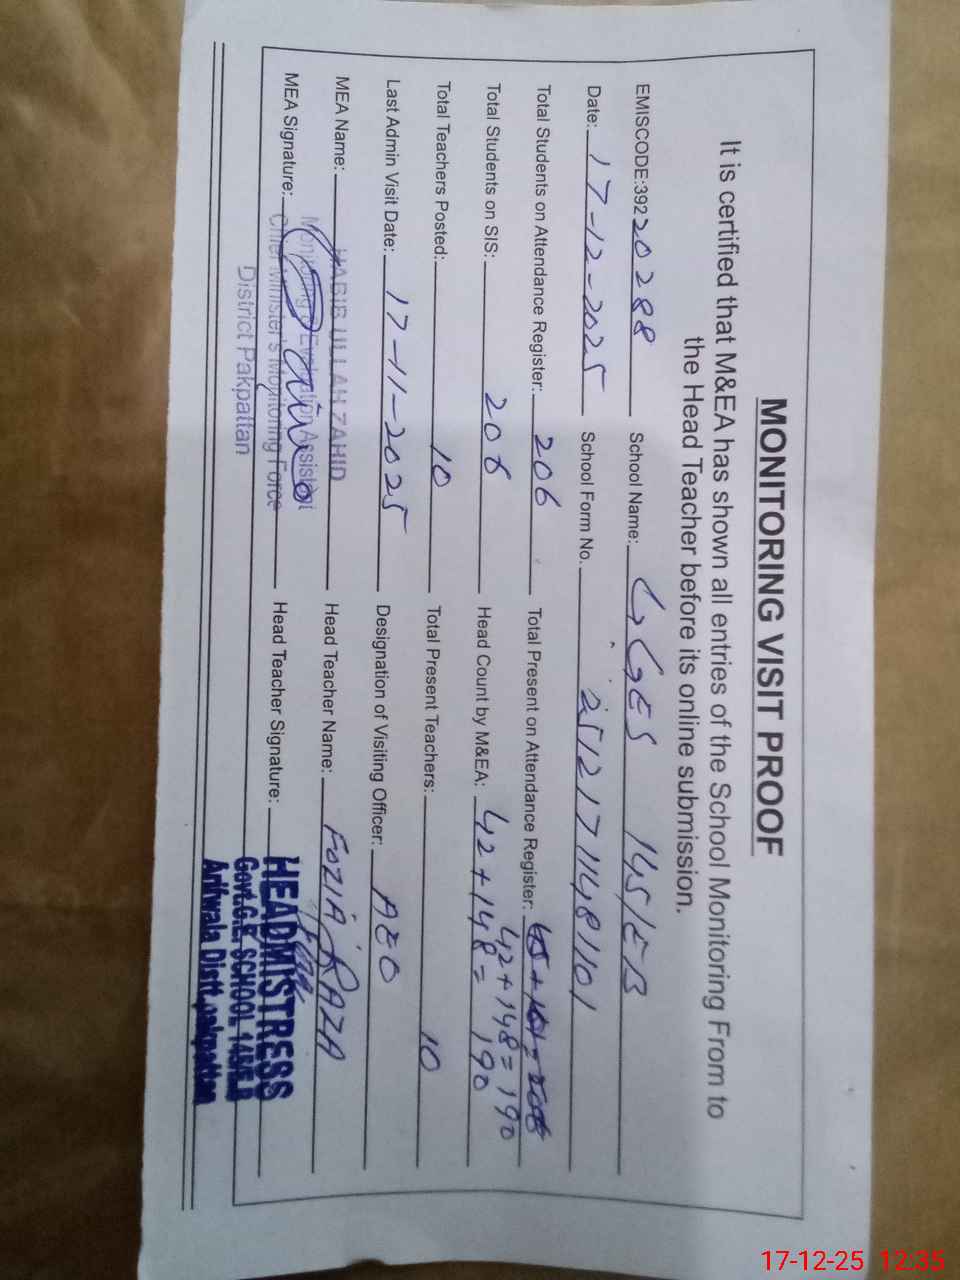 MONITORING VISIT PROOF
It is certified that M&EA has shown all entries of the School Monitoring From to
the Head Teacher before its online submission.
EMISCODE:39220288 School Name: GGES 145/EB
Date: 17-12-2025 School Form No. 2512171148101
Total Students on Attendance Register: 206 Total Present on Attendance Register: 42+148=190
Total Students on SIS: 206 Head Count by M&EA: 42+148=190
Total Teachers Posted: 10 Total Present Teachers: 10
Last Admin Visit Date: 17-11-2025 Designation of Visiting Officer: AEO
MEA Name: HABIB ULLAH ZAHID Head Teacher Name: FOZIA RAZA
MEA Signature: Head Teacher Signature:
Monitoring & Evaluation Assistant
Chief Minister's Monitoring Force
District Pakpattan
HEADMISTRESS
Govt.G.E. SCHOOL 145/E.B
Arifwala Distt. pakpattan
17-12-25 12:35